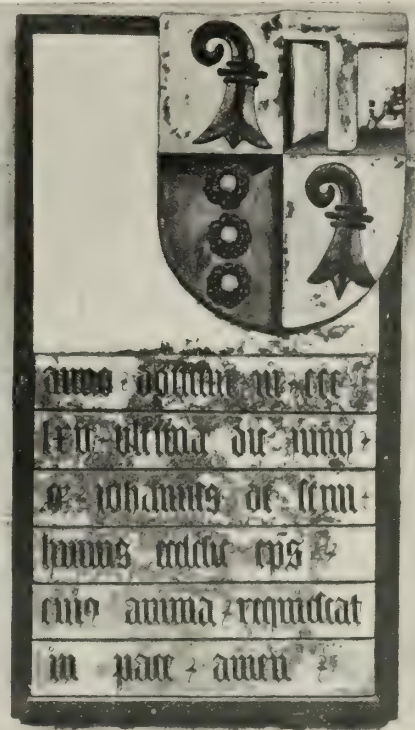 anno · domini m · ccc
lxv · ultima die iunii ·
iohannes de senn ·
huius ecclesie ep̄s
cuiꝰ anima · requiescat
in pace · amen